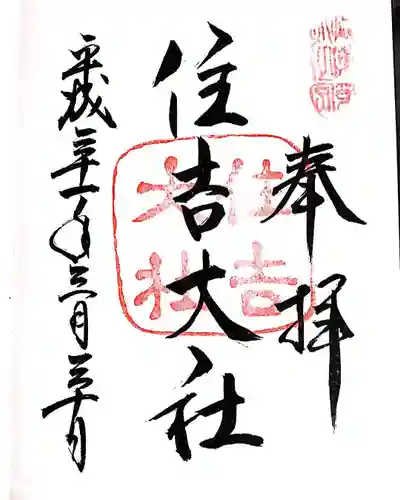 奉拝
住吉大社
住吉
大社
平成三十一年三月三十日